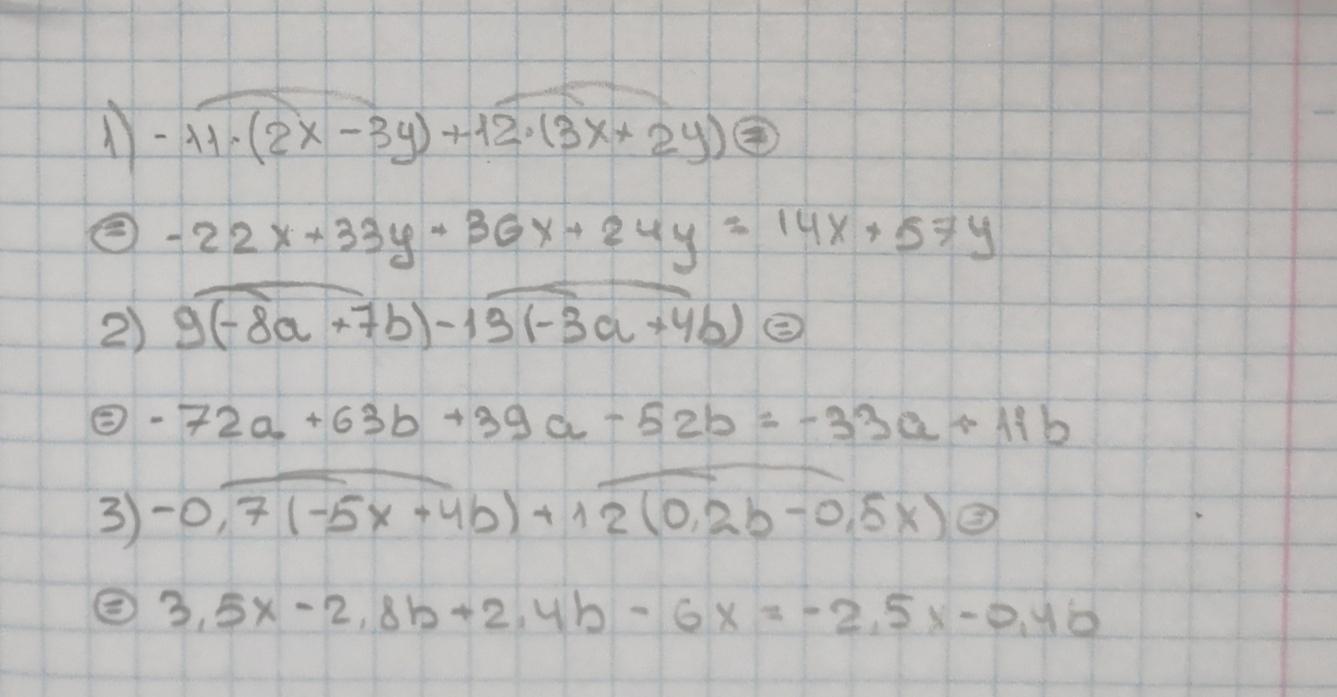 1) -11·(2x-3y)+12·(3x+2y)=
= -22x+33y+36x+24y = 14x+57y
2) 9(-8a+7b)-13(-3a+4b) =
= -72a+63b+39a-52b = -33a+11b
3) -0,7(-5x+4b)+12(0,2b-0,5x) =
= 3,5x-2,8b+2,4b-6x = -2,5x-0,4b